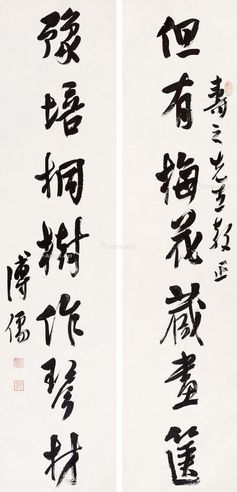 壽之先生教正
但有梅花藏畫篋
豫培桐樹作琴材
溥儒